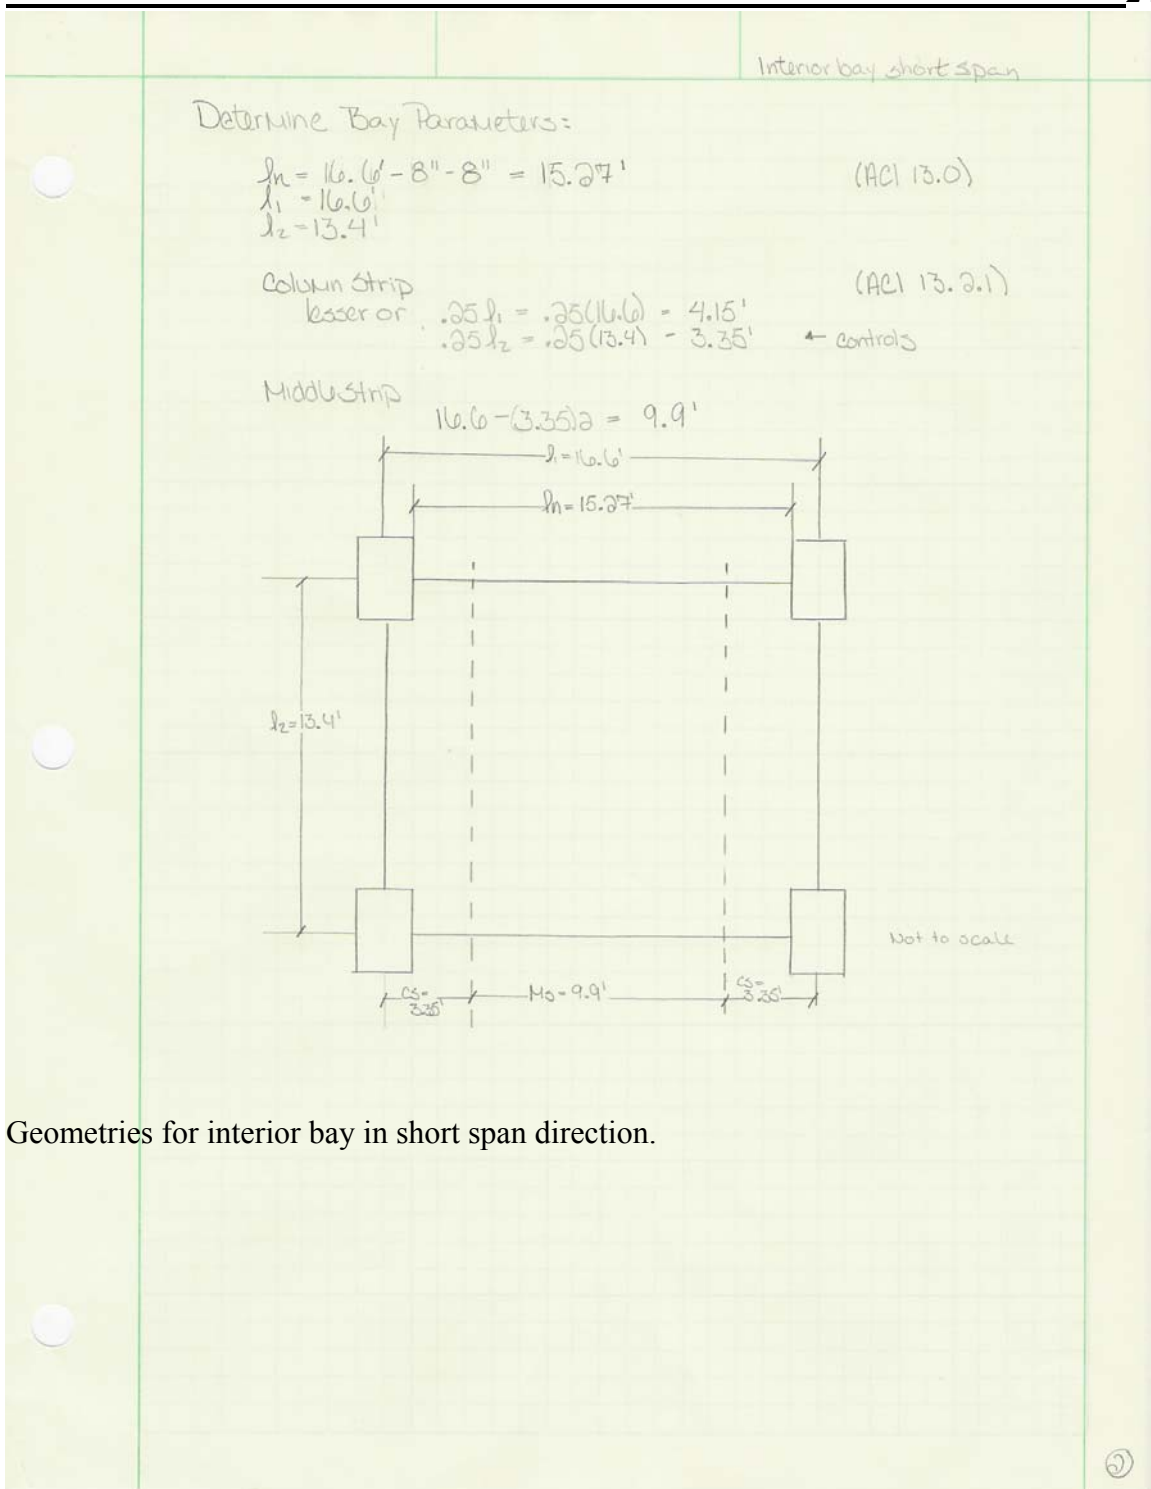 Interior bay short span
Determine Bay Parameters:
ln = 16.6' - 8" - 8" = 15.27' (ACI 13.0)
l1 = 16.6'
l2 = 13.4'
Column Strip (ACI 13.2.1)
lesser or .25 l1 = .25(16.6) = 4.15'
.25 l2 = .25(13.4) = 3.35' ← controls
Middle Strip
16.6 - (3.35)2 = 9.9'
l1 = 16.6'
ln = 15.27'
l2 = 13.4'
Not to scale
CS = 3.35'
MS = 9.9'
CS = 3.35'
Geometries for interior bay in short span direction.
2